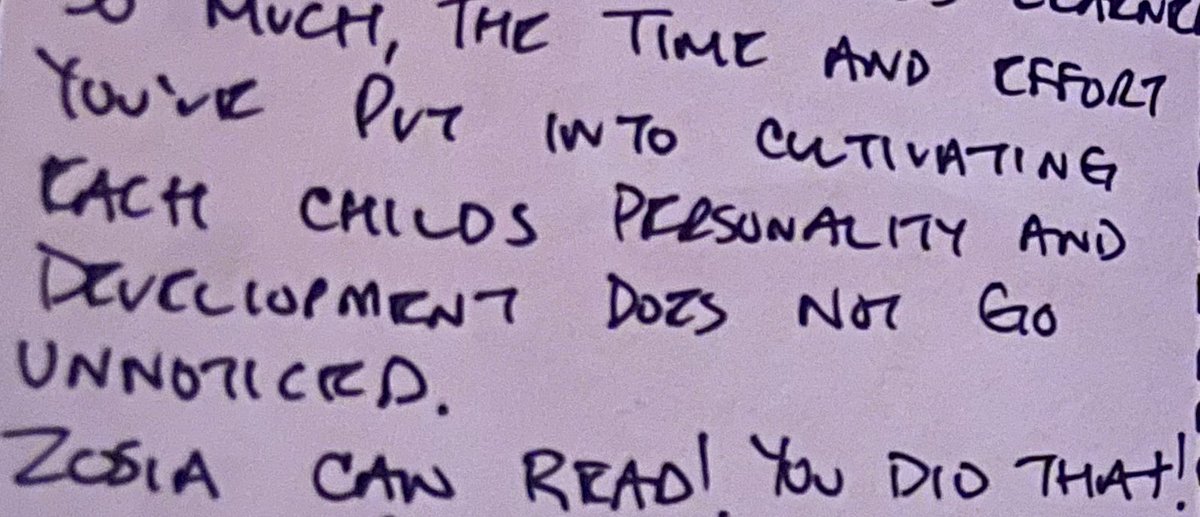 SO MUCH, THE TIME AND EFFORT
YOU'VE PUT INTO CULTIVATING
EACH CHILDS PERSONALITY AND
DEVELOPMENT DOES NOT GO
UNNOTICED.
ZOSIA CAN READ! YOU DID THAT!